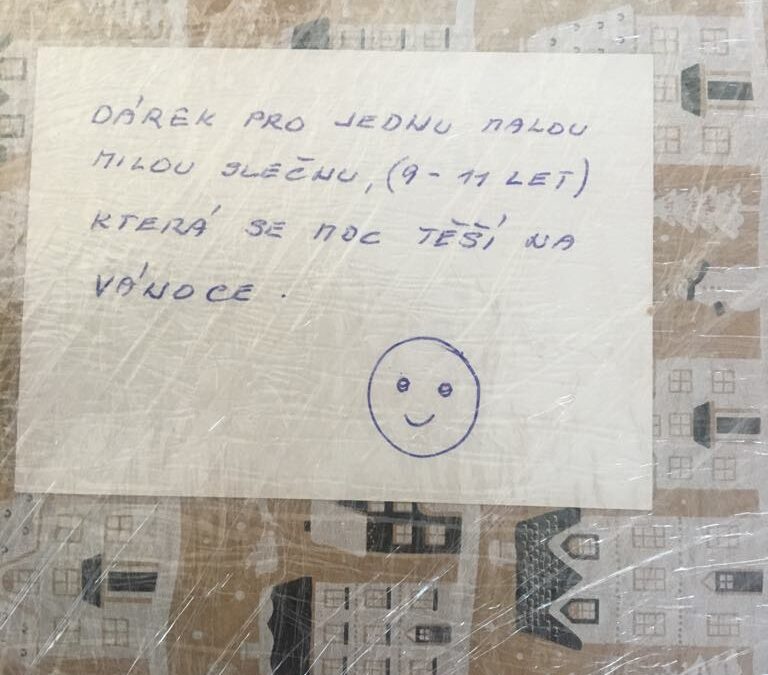 DÁREK PRO JEDNU MALOU
MILOU SLEČNU, (9 - 11 LET)
KTERÁ SE MOC TĚŠÍ NA
VÁNOCE.